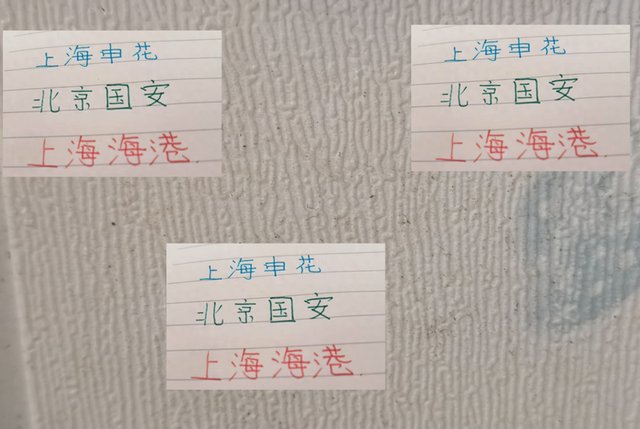 上海申花
北京国安
上海海港.
上海申花
北京国安
上海海港.
上海申花
北京国安
上海海港.